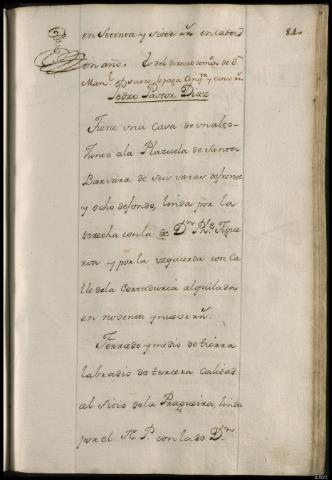 84
en setenta y siete rr.s en cada
un año. Y del directo dom.o de D.n
Man.l
Pedro Pastor Diaz
Tiene una Casa de un alto
Junto a la Plazuela de Santa
Barvara de seis varas de frente
y ocho de fondo, linda por la
derecha con la de D.n Ph.e Figue
roa y por la yzquierda con Ca
lle de la Cortaduria alquilada
en noventa y nueve rr.s
Ferrado y medio de tierra
labradio de tercera Calidad
al Sitio de la Pragueira, linda
por el N. P. con la de D.n